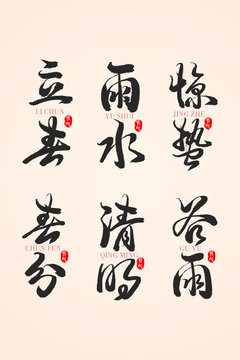 立春
LI CHUN
雨水
YU SHUI
惊蛰
JING ZHE
春分
CHUN FEN
清明
QING MING
谷雨
GU YU